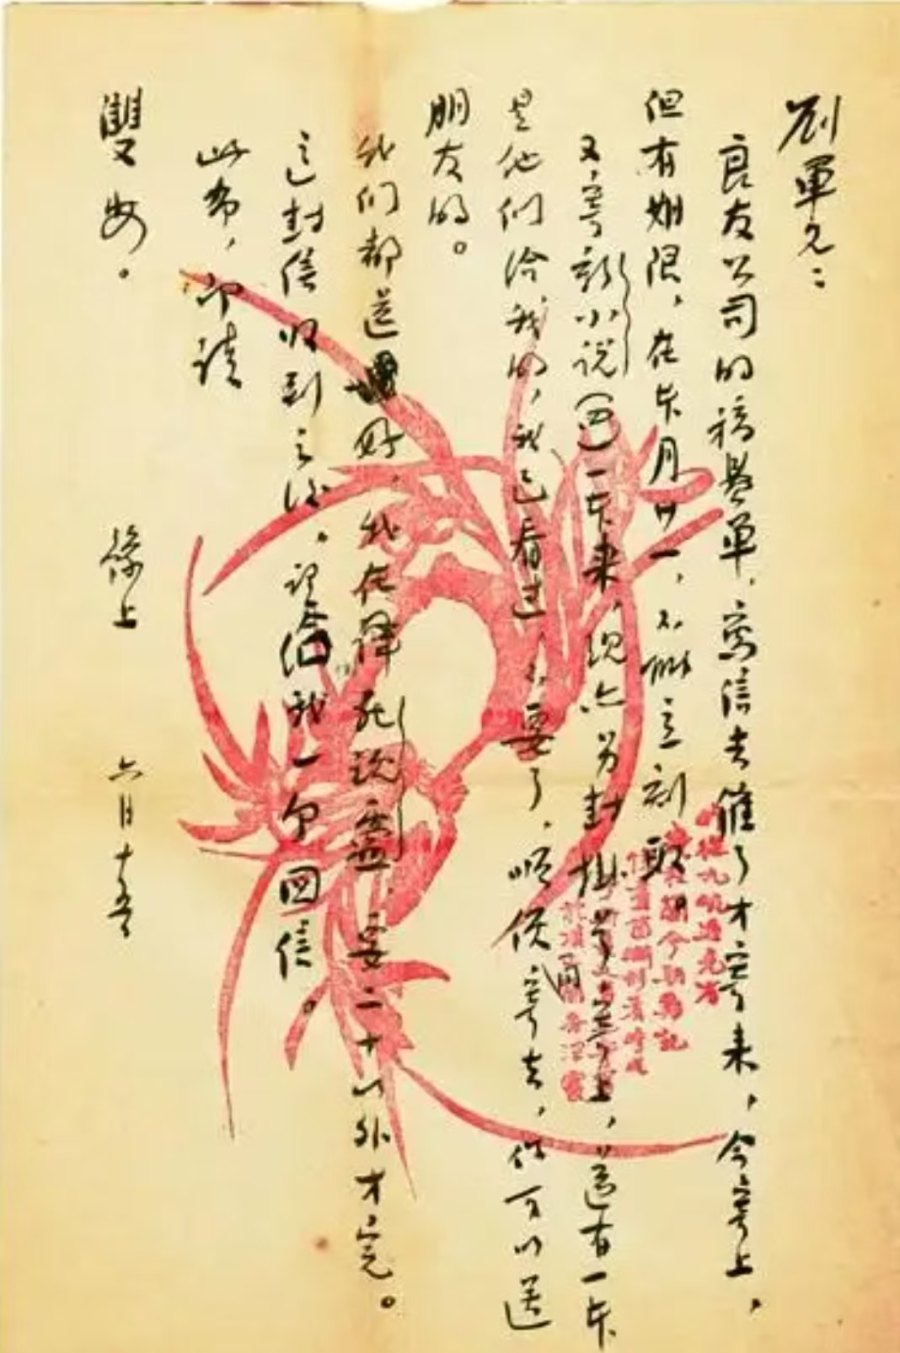 刘军兄：
良友公司的稿费单，写信去催了才寄来，今寄上，
但有期限，在本月廿一，不能立刻取。
又寄新小说（四）一本来，现亦另封挂号寄上，还有一本
是他们给我的，我已看过，不要了，顺便寄去，你可以送
朋友的。
我们都还好，我在译死魂灵，要二十以外才完。
这封信收到之后，望给我一个回信。
此布，即请
雙安。
豫上 六月十五